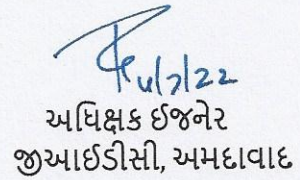 4/7/22
અધિક્ષક ઈજનેર
જીઆઈડીસી, અમદાવાદ